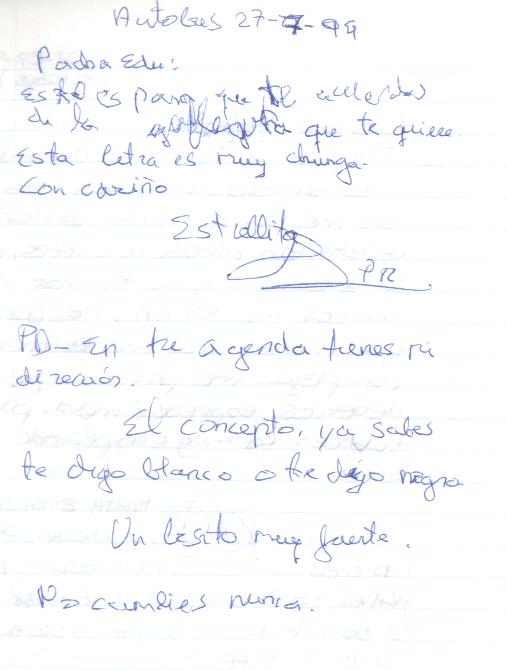 Autobus 27-7-99
Para Edu:
Esto es para que te acuerdes
de la que te quiere
Esta letra es muy chunga.
Con cariño
Estrellita
PR
PD- En tu agenda tienes mi
dirección.
El concepto, ya sabes
te digo blanco o te digo negro
Un besito muy fuerte.
No cambies nunca.